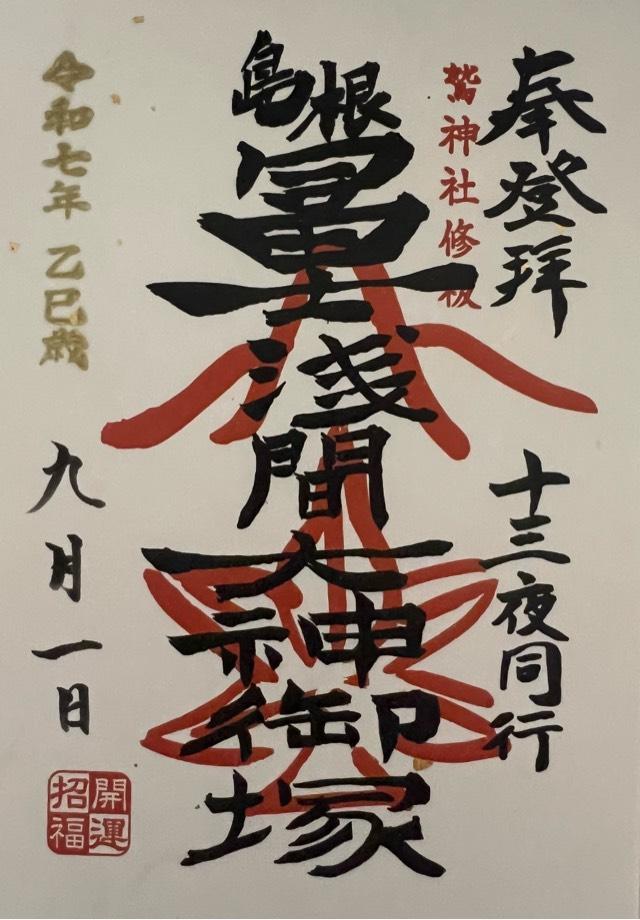 奉登拝
十三夜同行
鷲神社修祓
島根
冨士浅間大神御塚
令和七年 乙巳歳
九月一日
開運
招福